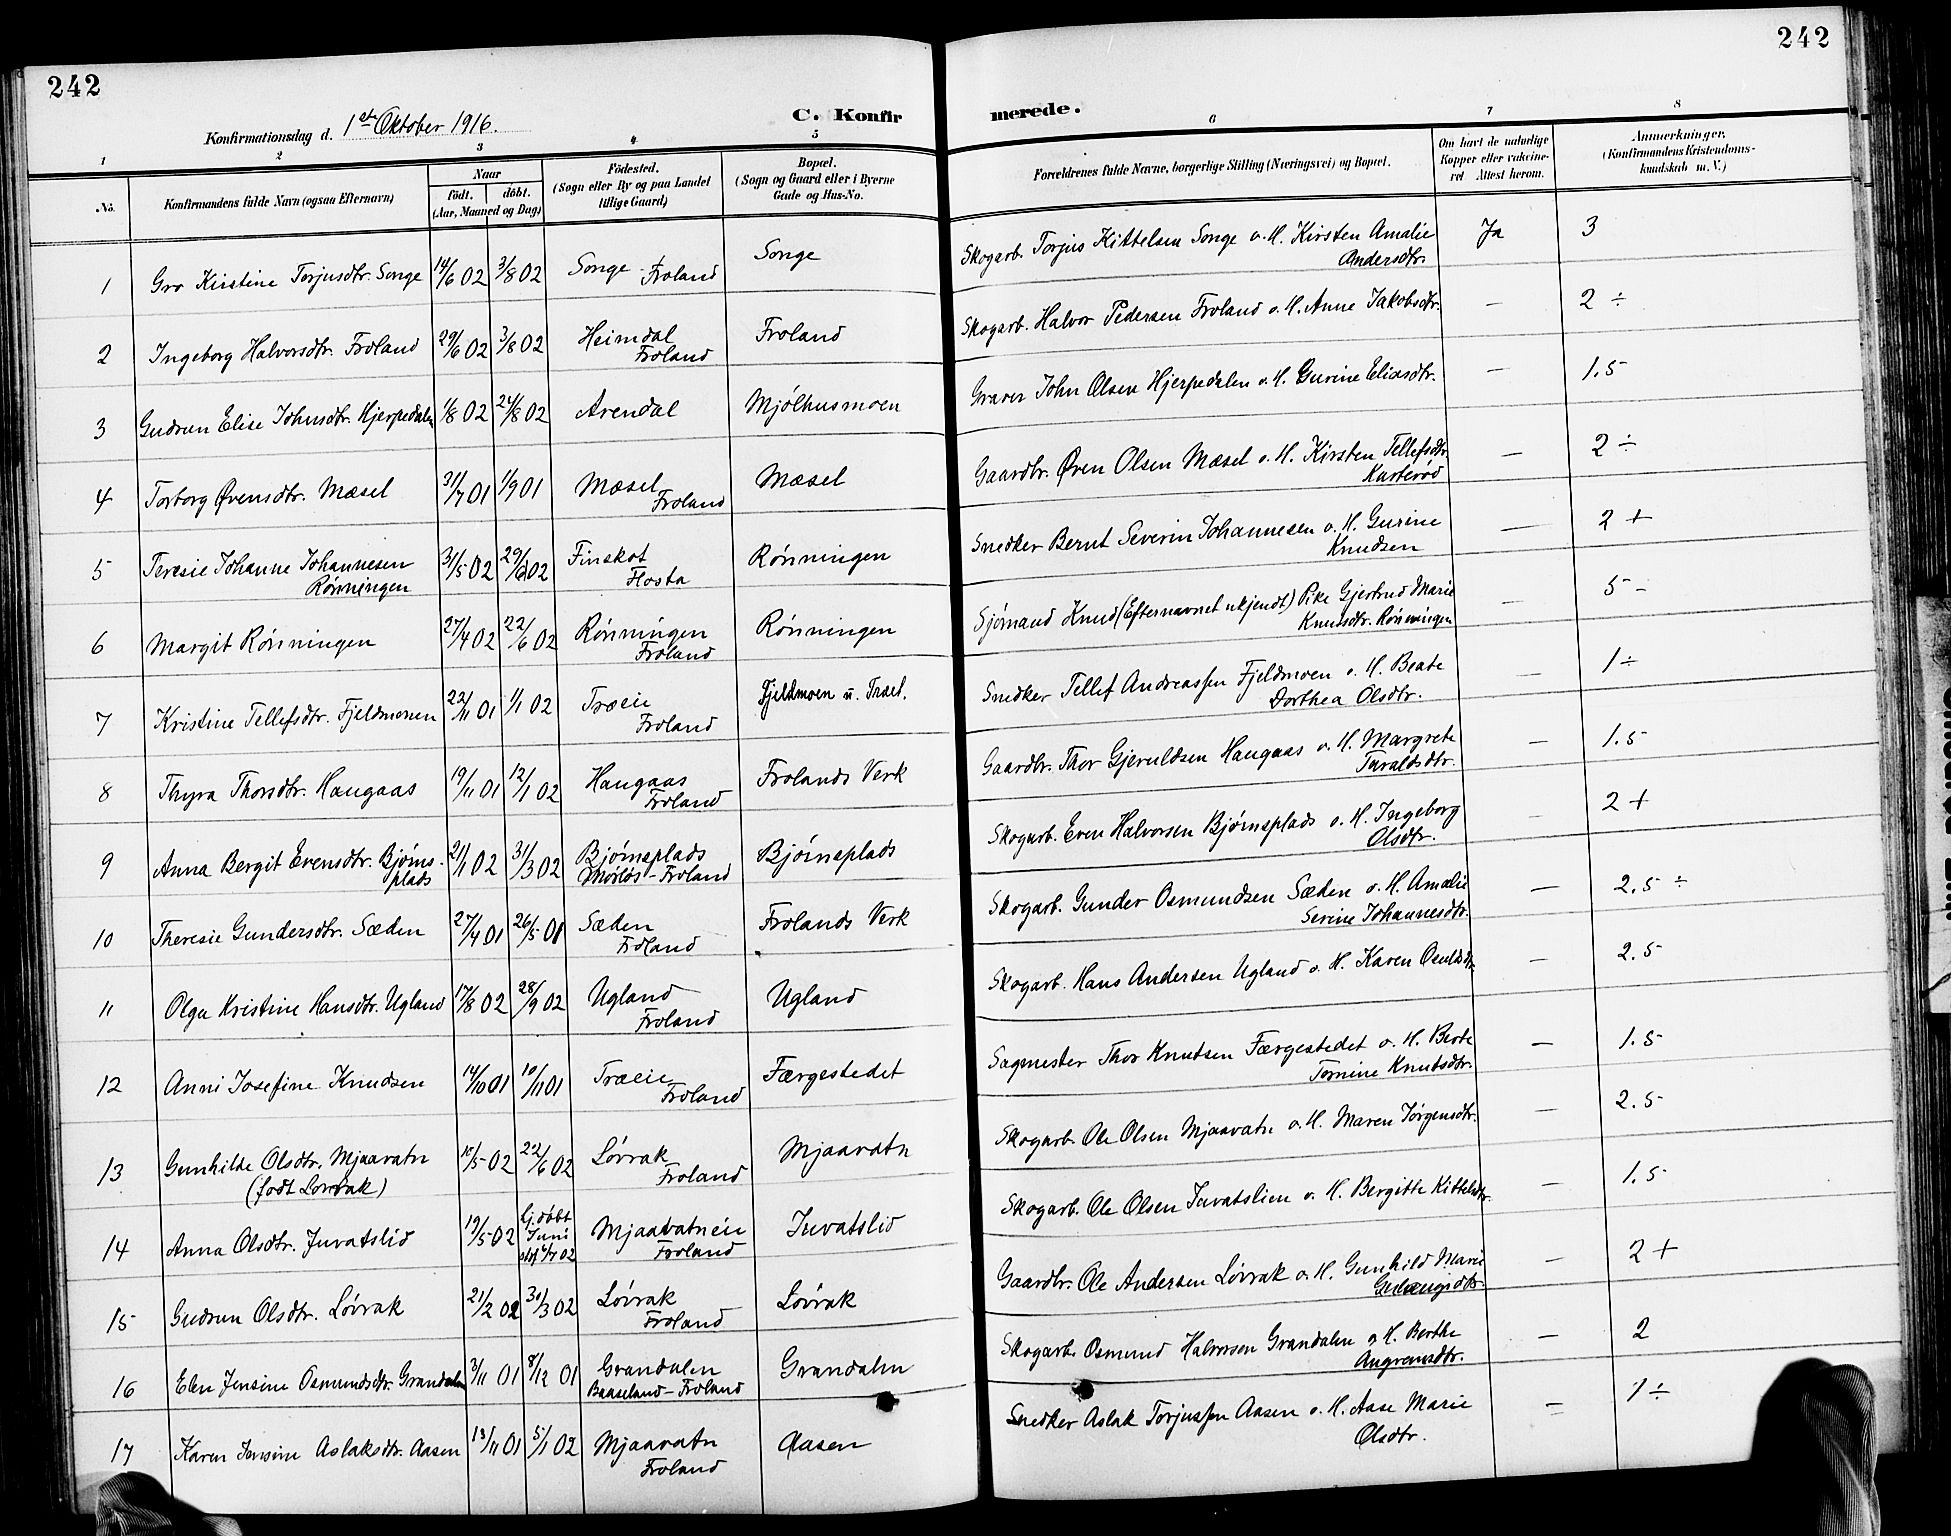 242
242
Konfirmationsdag d. 1ste Oktober 1916.
C. Konfirmerede.
1 2 3 4 5 6 7 8
No. Konfirmandens fulde Navn (ogsaa Efternavn) Naar födt. döbt. (Aar, Maaned og Dag) Födested. (Sogn eller By og paa Landet tillige Gaard) Bopæl. (Sogn og Gaard eller i Byerne Gade og Hus-No. Forældrenes fulde Navne, borgerlige Stilling (Næringsvei) og Bopæl. Om havt de naturlige Kopper eller vakcineret Attest herom. Anmerkninger. (Konfirmandens Kristendomskundskab m. V.)
1 Gro Kirstine Torjusdtr. Songe 14/6 02 3/8 02 Songe - Froland Songe Skogarb. Torjus Kittelsen Songe o. H. Kirsten Amalie Andersdtr. Ja 3
2 Ingeborg Halvorsdtr. Froland 29/6 02 3/8 02 Heimdal Froland Froland Skogarb. Halvor Pedersen Froland o. H. Anne Jakobsdtr. — 2 ÷
3 Gudrun Elise Johnsdtr. Hjerpedalen 1/8 02 24/8 02 Arendal Mjölhusmoen Graver John Olsen Hjerpedalen o. H. Gurine Eliasdtr. — 1.5
4 Torborg Øvensdtr. Mæsel 31/7 01 1/9 01 Mæsel Froland Mæsel Gaardbr. Øven Olsen Mæsel o. H. Kirsten Tellefsdtr. Karterød — 2 ÷
5 Teresie Johanne Johannesen Rönningen 31/5 02 29/6 02 Finskot Flosta Rönningen Snedker Bernt Severin Johannesen o. H. Gurine Knudsen — 2 +
6 Margit Rönningen 27/4 02 22/6 02 Rönningen Froland Rönningen Sjömand Knud (Efternavnet ukjendt) Pike Gjertrud Marie Knutsdtr. Rönningen — 5 -
7 Kristine Tellefsdtr. Fjeldmoen 22/11 01 1/1 02 Træie Froland Fjeldmoen u. Træl. Snedker Tellef Andreassen Fjeldmoen o. H. Beate Dorthea Olsdtr. — 1 ÷
8 Thyra Thorsdtr. Haugaas 19/11 01 12/1 02 Haugaas Froland Frolands Verk Gaardbr. Thor Gjeruldsen Haugaas o. H. Margrete Taraldsdtr. — 1.5
9 Anna Bergit Evensdtr. Bjöms-plads 21/1 02 31/3 02 Björnsplads Froland Björnsplads Skogarb. Even Halvorsen Björnsplads o. H. Ingeborg Olsdtr. — 2 +
10 Theresie Gundersdtr. Sæden 27/4 01 26/5 01 Sæden Froland Frolands Verk Skogarb. Gunder Osmundsen Sæden o. H. Amalie Serine Johannesdtr. — 2.5 ÷
11 Olga Kristine Hansdtr. Ugland 17/8 02 28/9 02 Ugland Froland Ugland Skogarb. Hans Andersen Ugland o. H. Karen — 2.5
12 Anni Josefine Knudsen 14/10 01 10/11 01 Træie Froland Færgestedet Sagmester Thor Knutsen Færgestedet o. H. Berte Tomine Knutsdtr. — 1.5
13 Gunhilde Olsdtr. Mjaavatn (født Lövrak) 10/5 02 22/6 02 Lövrak Froland Mjaavatn Skogarb. Ole Olsen Mjaavatn o. H. Maren Jörgensdtr. — 2.5
14 Anna Olsdtr. Juvatslid 19/5 02 Hj.döbt Juni 02 Mjaavatneie Froland Juvatslid Skogarb. Ole Olsen Juvatslien o. H. Bergitte Kittelsdtr. — 1.5
15 Gudrun Olsdtr. Lövrak 21/2 02 30/3 02 Lövrak Froland Lövrak Gaardbr. Ole Andersen Lövrak o. H. Gunhild Marie — 2 +
16 Elen Jensine Osmundsdtr. Grandalen 3/11 01 8/12 01 Grandalen Baaseland - Froland Grandalen Skogarb. Osmund Halvorsen Grandalen o. H. Berthe Angremsdtr. — 2
17 Karen Jensine Aslaksdtr. Aasen 13/11 01 5/1 02 Mjaavatn Froland Aasen Snedker Aslak Torjussen Aasen o. H. Aase Marie Olsdtr. — 1 ÷